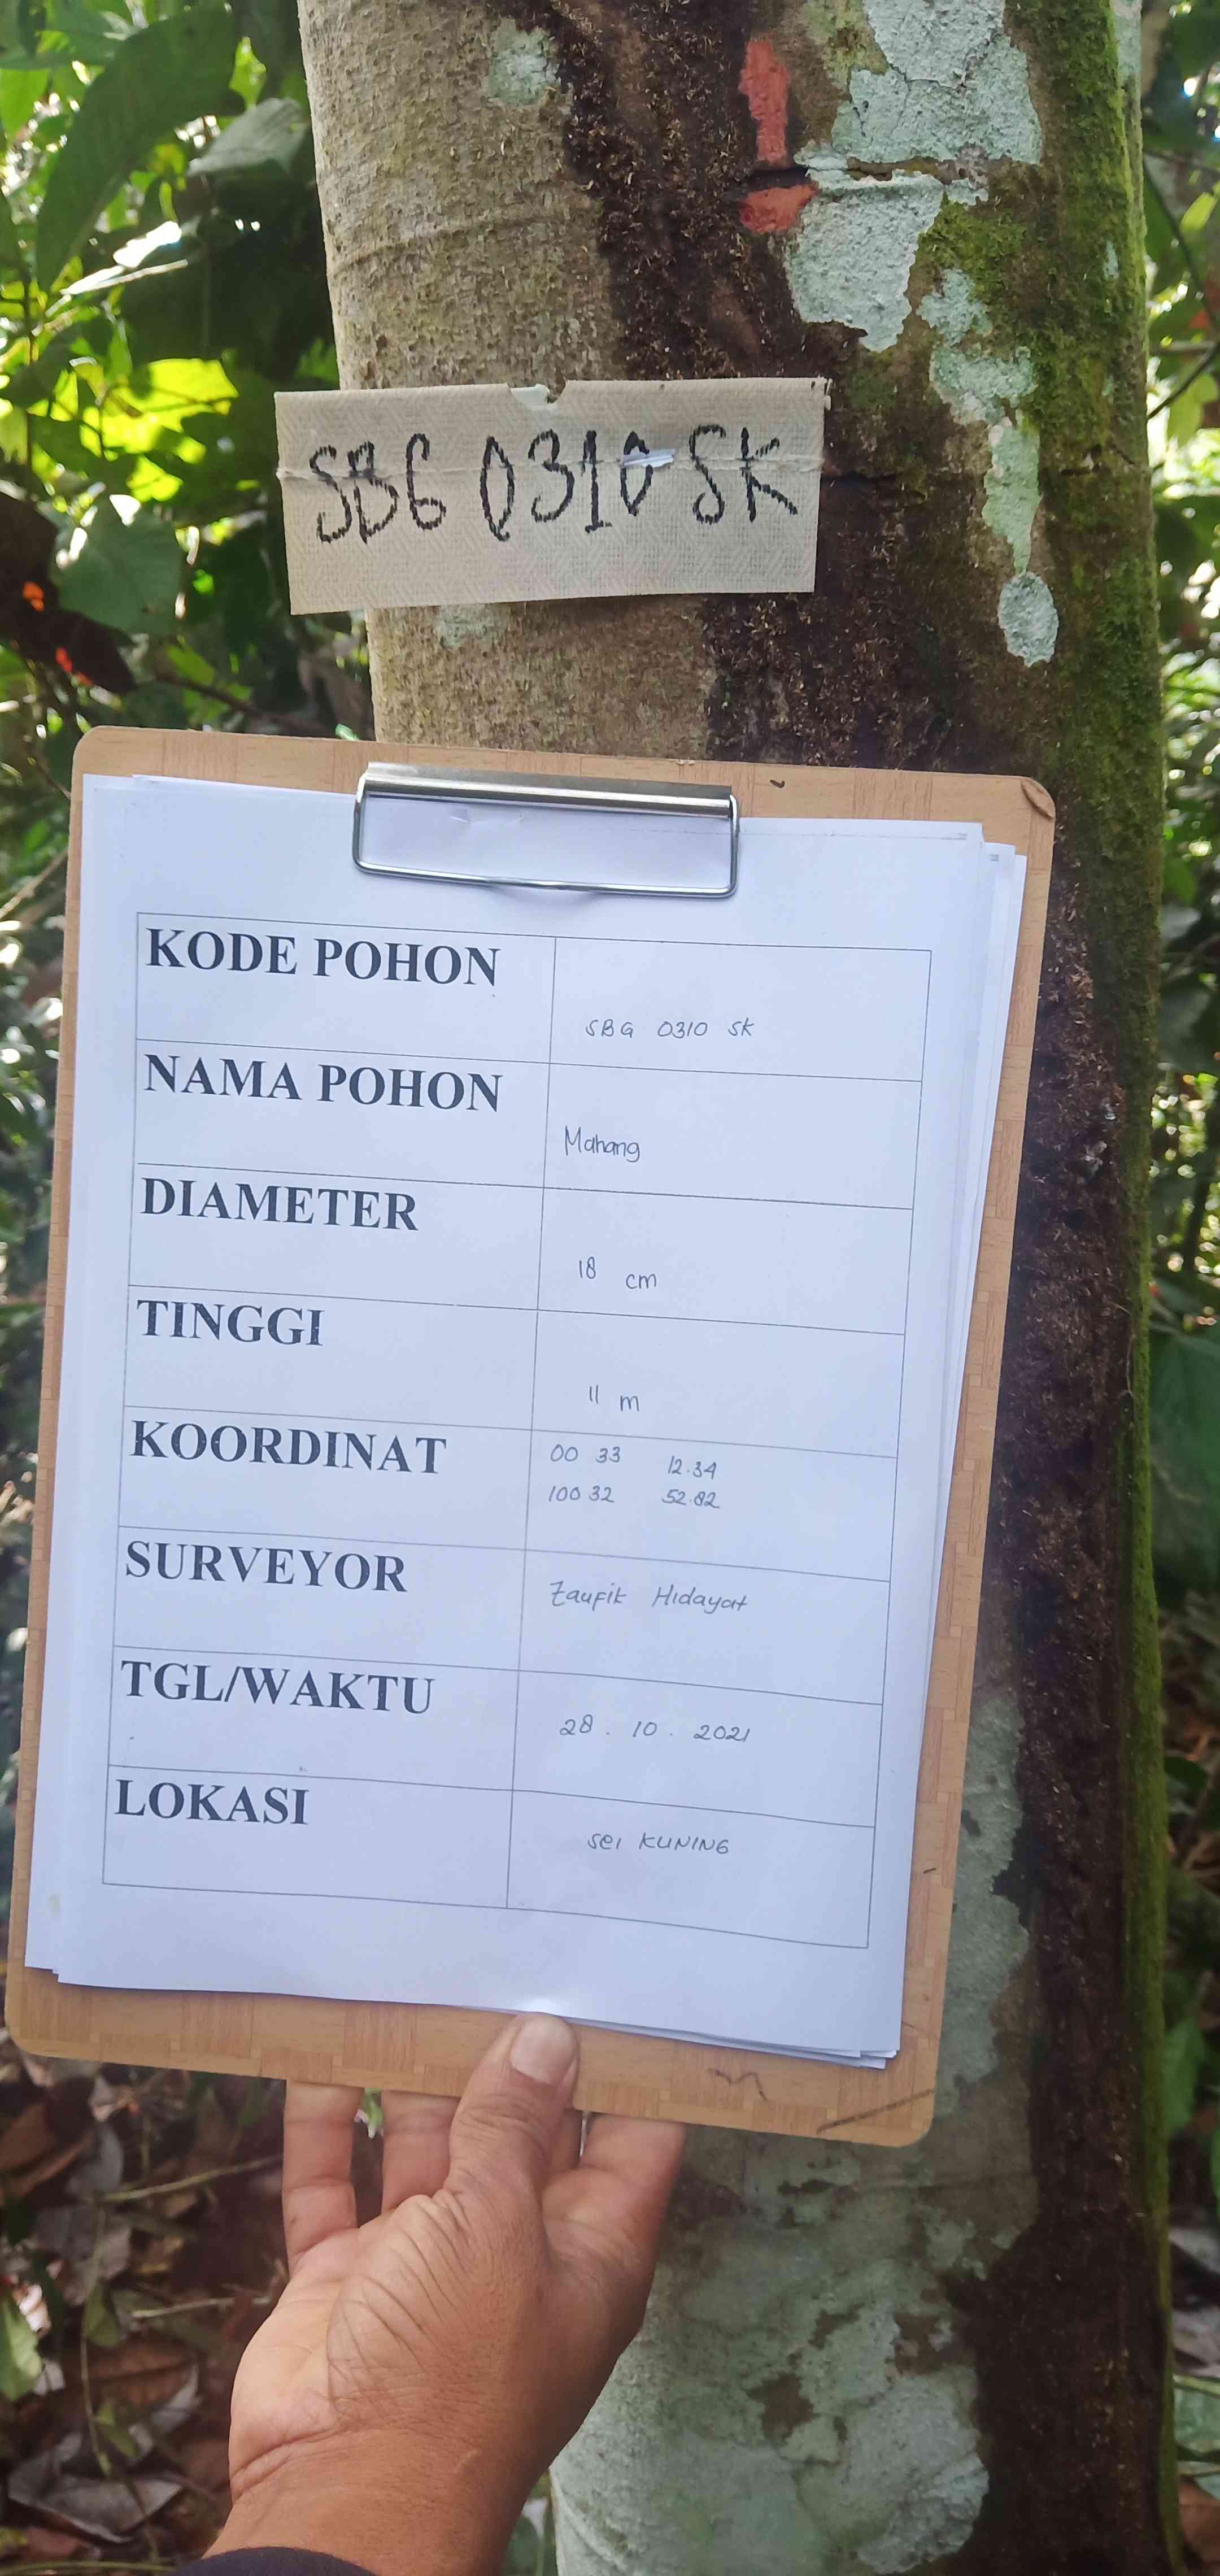 SBG 0310 SK
KODE POHON
SBG 0310 SK
NAMA POHON
Mahang
DIAMETER
18 cm
TINGGI
11 m
KOORDINAT
00 33 12.34
100 32 52.82
SURVEYOR
Taufik Hidayat
TGL/WAKTU
28 . 10 . 2021
LOKASI
Sei KUNING